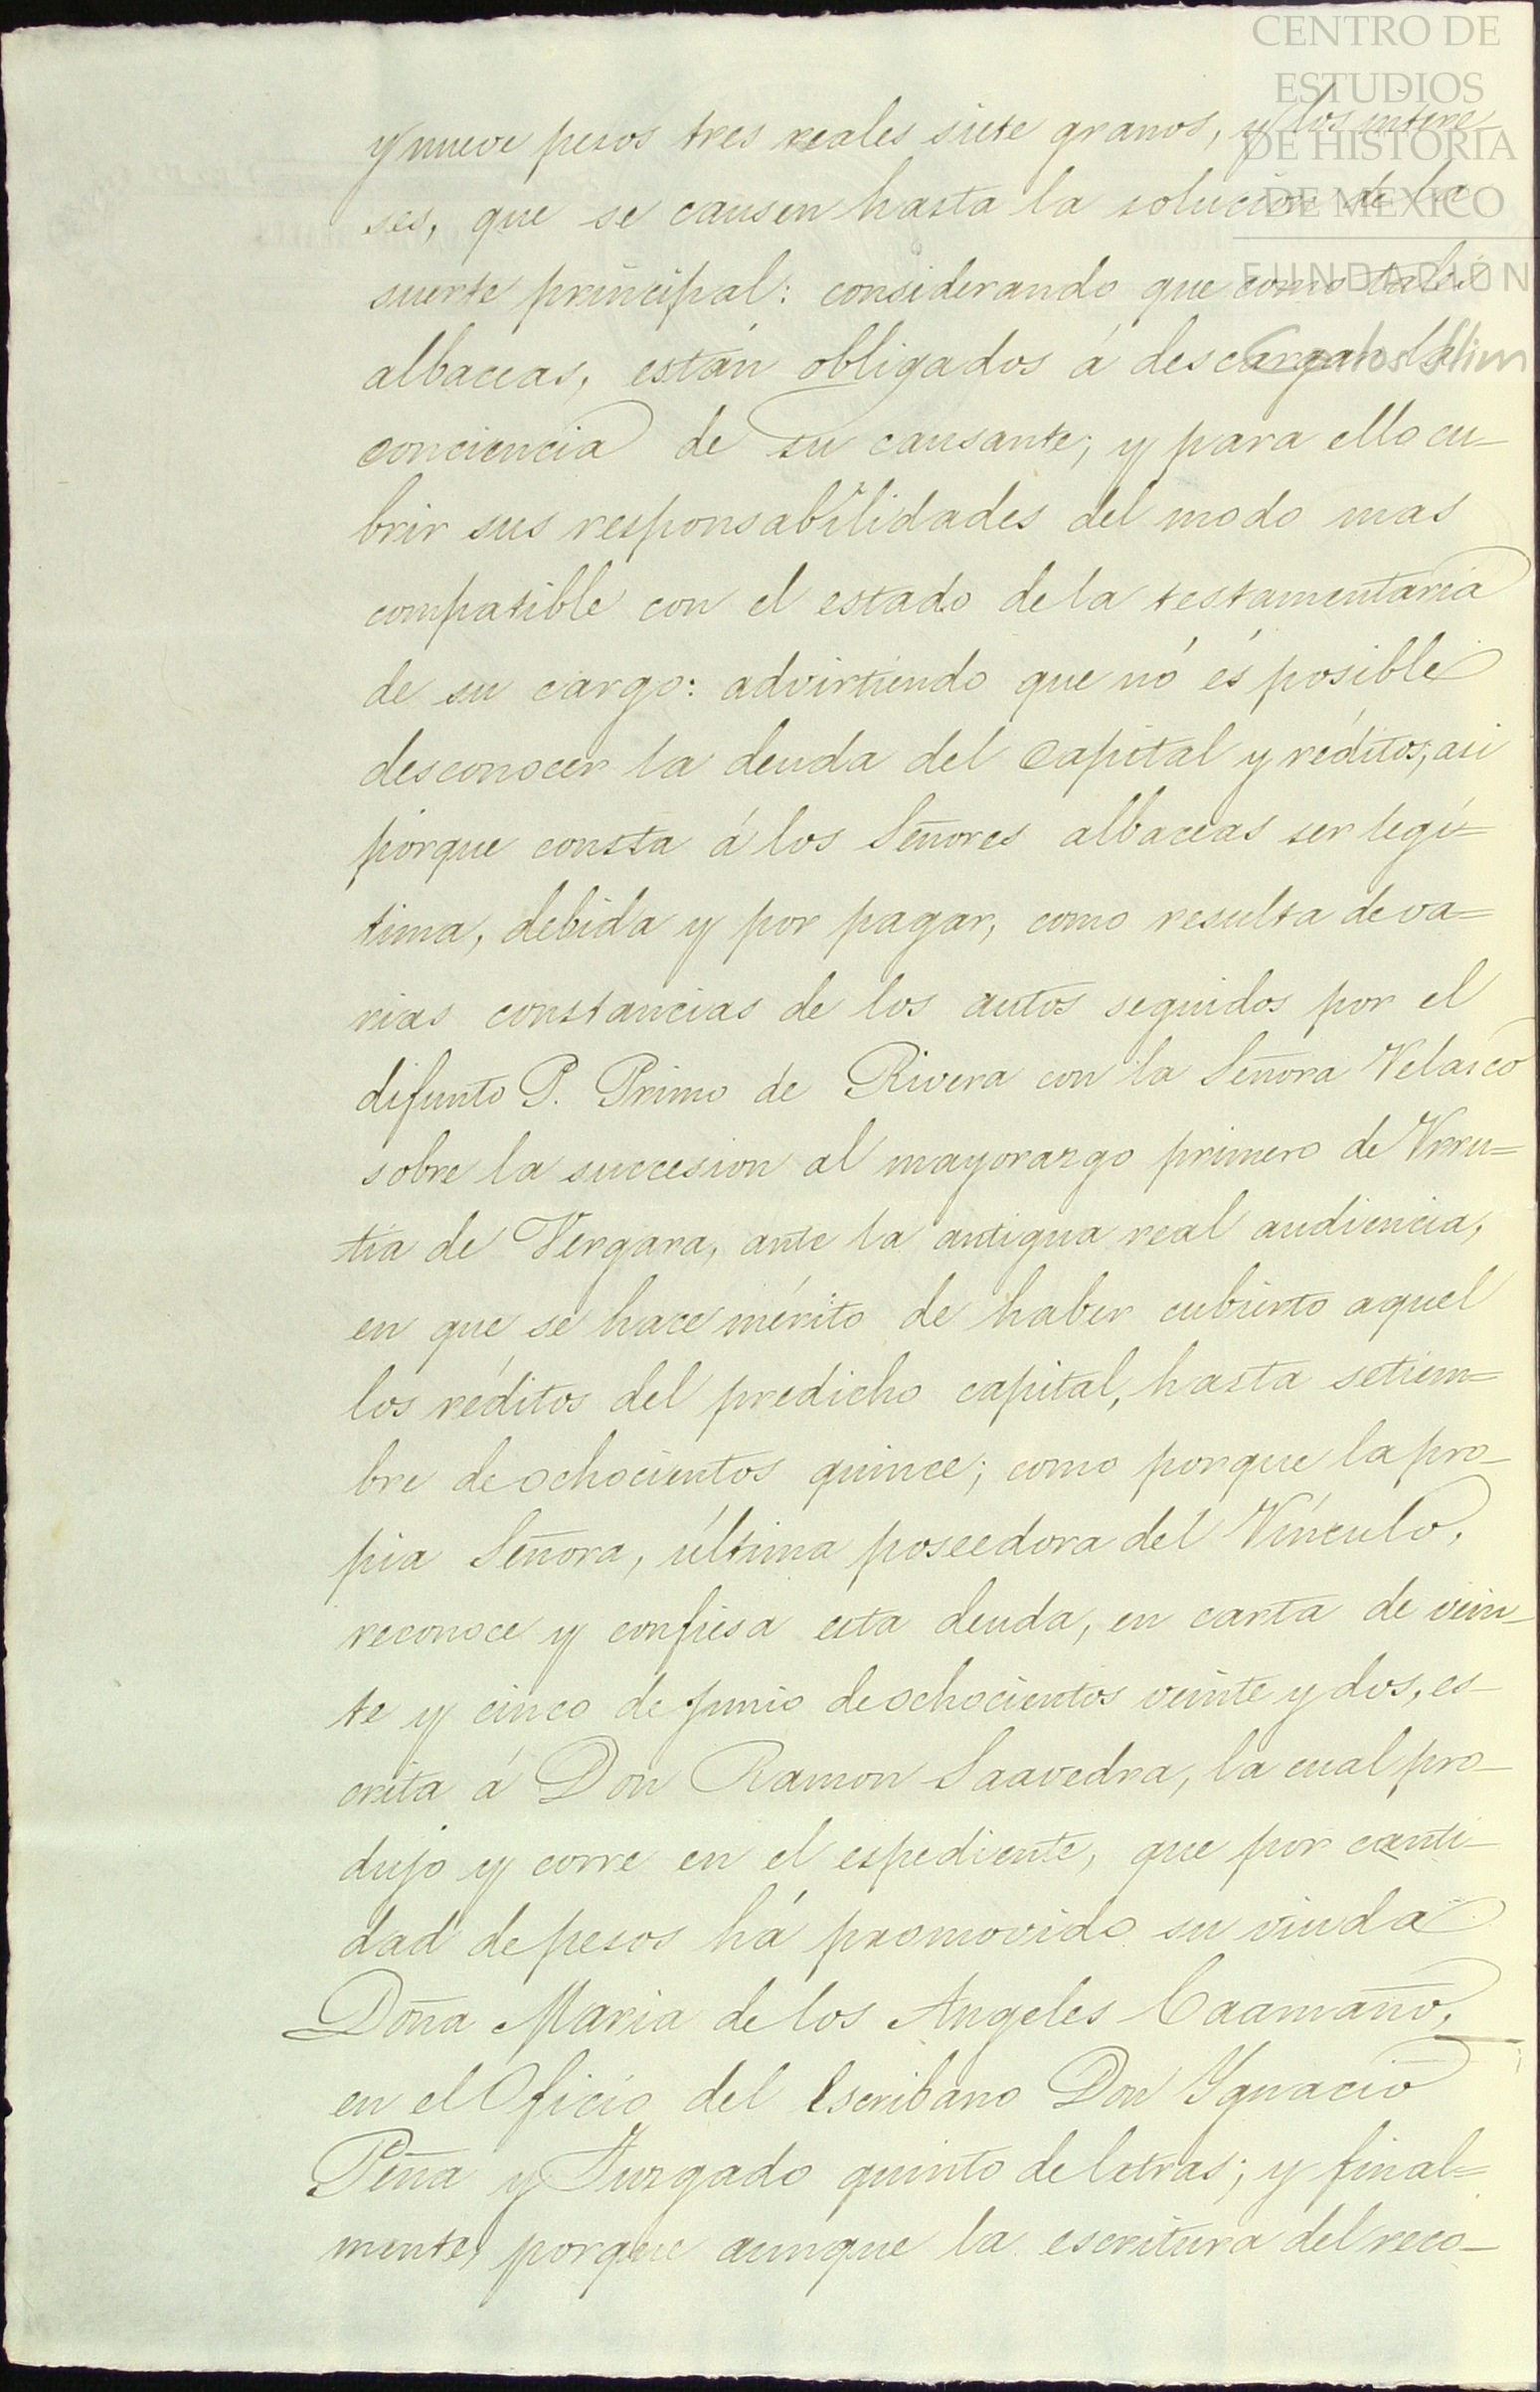 CENTRO DE
ESTUDIOS
DE HISTORIA
DE MÉXICO
FUNDACIÓN
Carlos Slim
y nueve pesos tres reales siete granos, y los intere-
ses, que se causen hasta la solucion de la
suerte principal: considerando que como tales
albaceas, están obligados á descargar la
conciencia de su causante; y para ello cu-
brir sus responsabilidades del modo mas
compatible con el estado de la testamentaría
de su cargo: advirtiendo que nó és posible
desconocer la deuda del capital y réditos, asi
porque consta á los Señores albaceas ser legí-
tima, debida y por pagar, como resulta de va=
rias constancias de los autos seguidos por el
difunto P. Primo de Rivera con la Señora Velasco
sobre la succesion al mayorazgo primero de Urru=
tia de Vergara, ante la antigua real audiencia,
en que se hace mérito de haber cubierto aquel
los réditos del predicho capital, hasta setiem=
bre de ochocientos quince; como porque la pro-
pia Señora, última poseedora del Vínculo,
reconoce y confiesa esta deuda, en carta de vein-
te y cinco de Junio de ochocientos veinte y dos, es-
crita á Don Ramon Saavedra, la cual pro-
dujo y corre en el espediente, que por canti-
dad de pesos há promovido su viuda
Doña Maria de los Angeles Caamaño,
en el Oficio del Escribano Don Ygnacio
Peña y Juzgado quinto de letras; y final=
mente, porque aunque la escritura del reco-